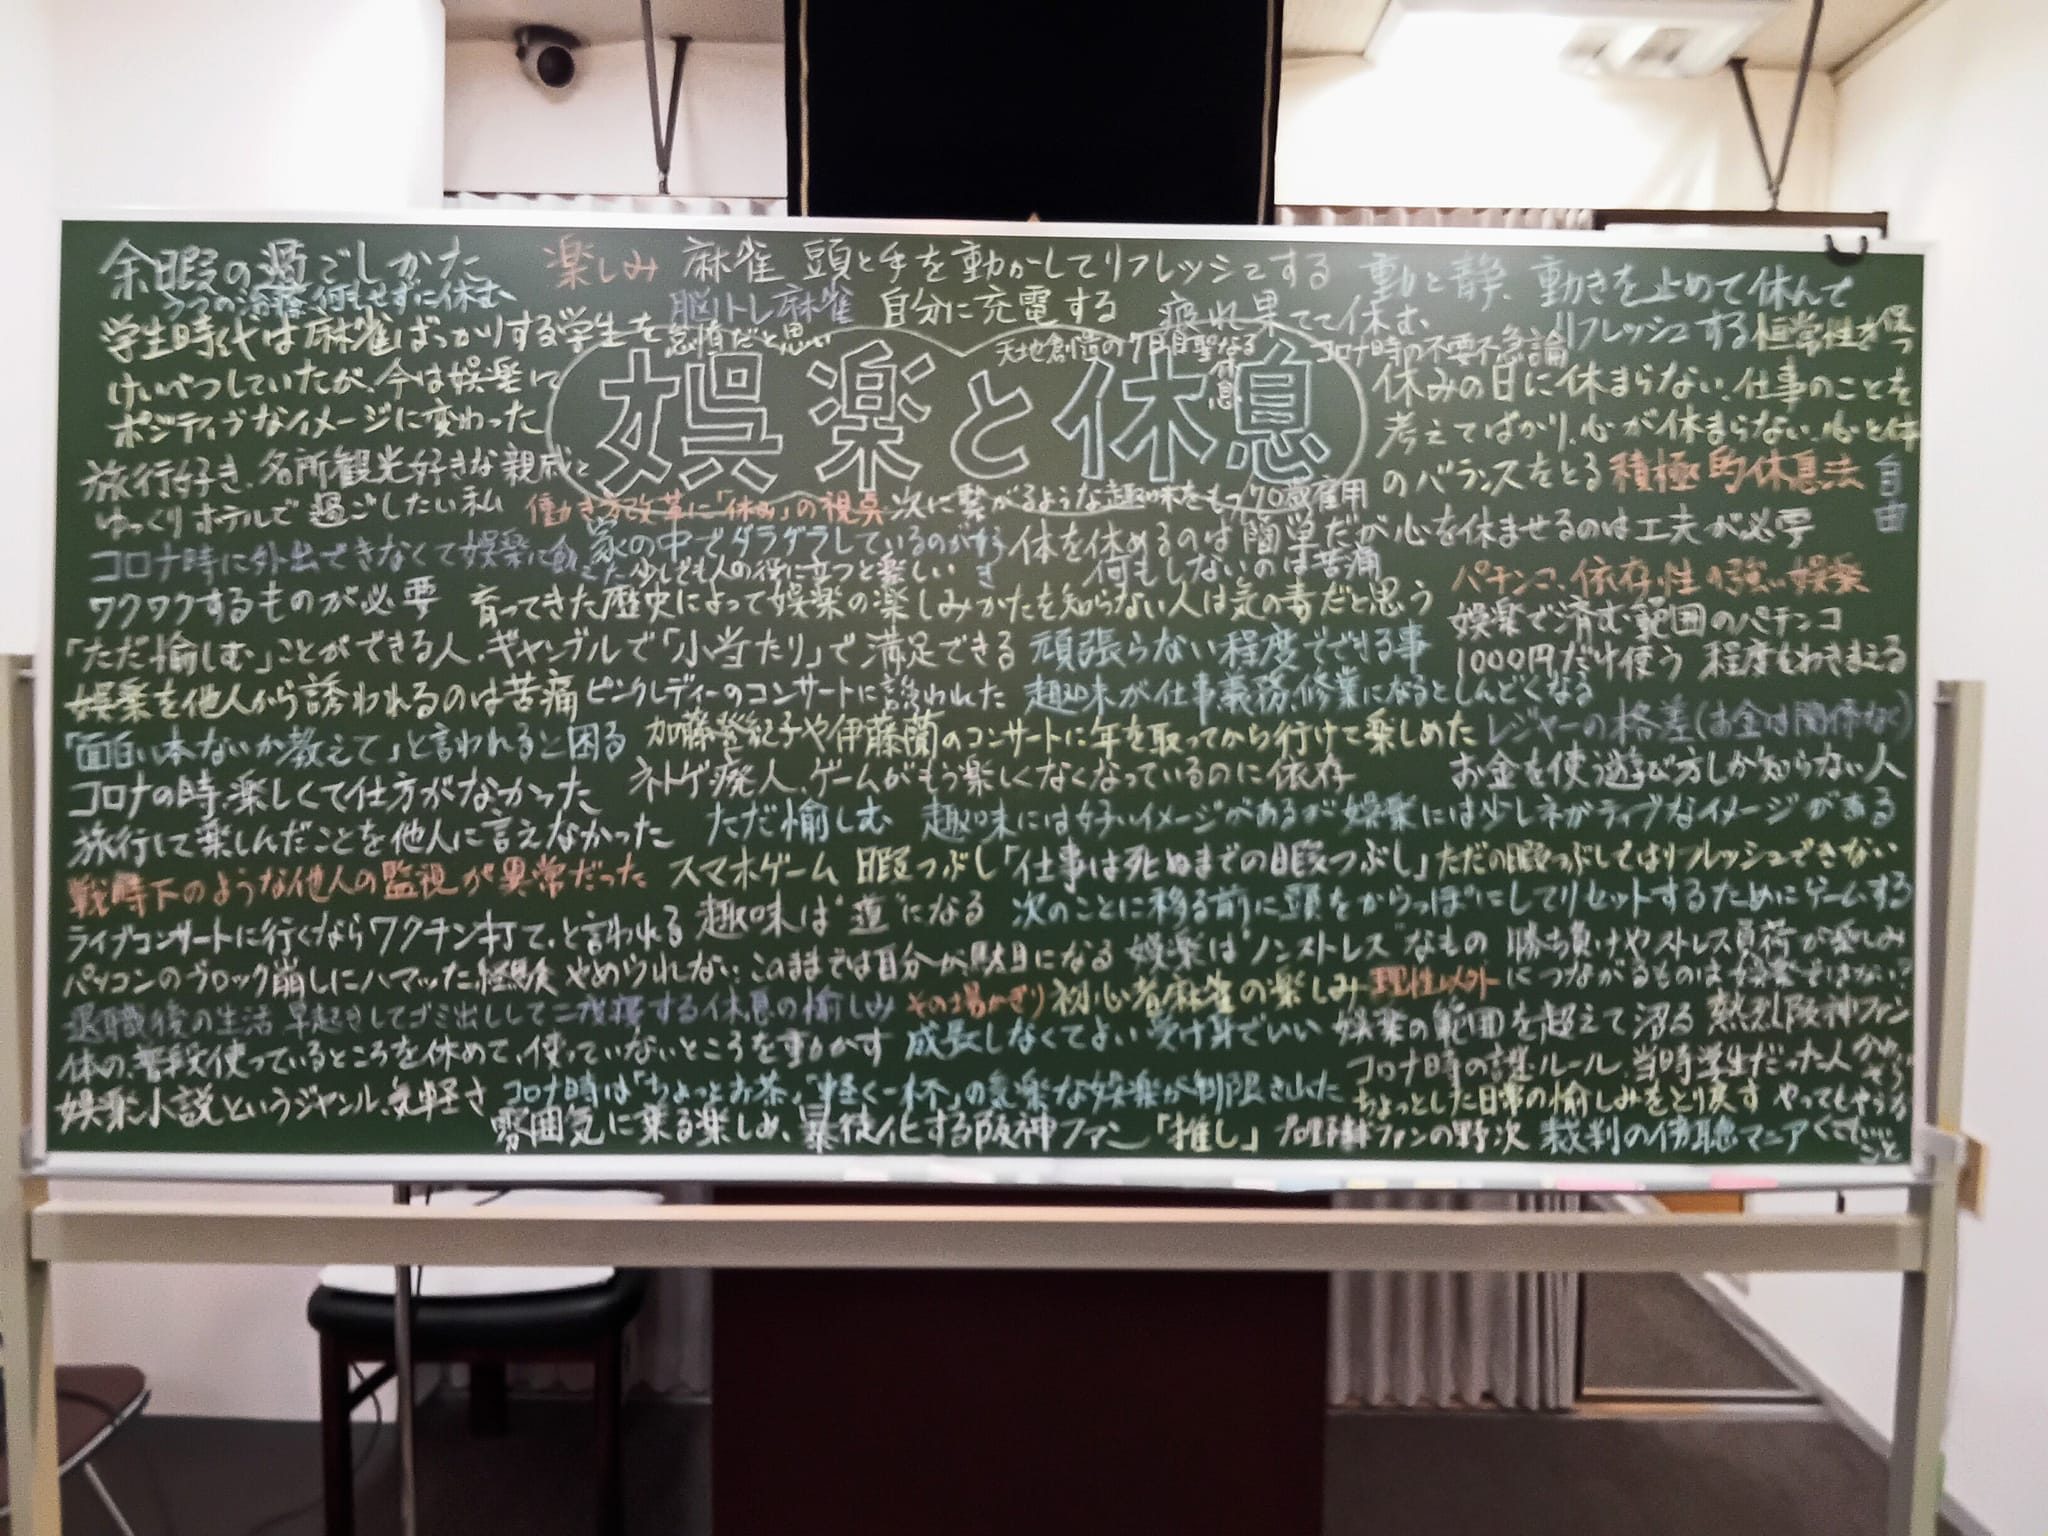 余暇の過ごしかた 楽しみ 麻雀 頭と手を動かしてリフレッシュする 動と静、動きを止めて休んで
うつの治療、何もせずに休む 脳トレ麻雀 自分に充電する 疲れ果てて休む、 リフレッシュする 恒常性を保つ
学生時代は麻雀ばっかりする学生を怠惰だと思い 天地創造の7日目聖なる休息 コロナ時の不要不急論
けいべつしていたが、今は娯楽に
ポジティブなイメージに変わった
娯楽と休息
休みの日に休まらない、仕事のことを
考えてばかり、心が休まらない、心と体
のバランスをとる 積極的休息法 自由
旅行好き、名所観光好きな親戚と
ゆっくりホテルで過ごしたい私 働き方改革に「休み」の視点 次に繋がるような趣味をもつ 70歳雇用
コロナ時に外出できなくて娯楽に飢えた 家の中でダラダラしているのが好き 体を休めるのは簡単だが心を休ませるのは工夫が必要
少しでも人の役に立つと楽しい 何もしないのは苦痛 パチンコ、依存性の強い娯楽
ワクワクするものが必要 育ってきた歴史によって娯楽の楽しみかたを知らない人は気の毒だと思う 娯楽で済む範囲のパチンコ
「ただ愉しむ」ことができる人、ギャンブルで「小当たり」で満足できる 頑張らない程度でできる事 1000円だけ使う 程度をわきまえる
娯楽を他人から誘われるのは苦痛 ピンクレディーのコンサートに誘われた 趣味が仕事、義務、修業になるとしんどくなる
「面白い本ないか教えて」と言われると困る 加藤登紀子や伊藤蘭のコンサートに年を取ってから行けて楽しめた レジャーの格差(お金は関係なく)
コロナの時、楽しくて仕方がなかった ネトゲ廃人、ゲームがもう楽しくなくなっているのに依存 お金を使う遊び方しか知らない人
旅行して楽しんだことを他人に言えなかった ただ愉しむ 趣味には好いイメージがあるが娯楽には少しネガティブなイメージがある
戦時下のような他人の監視が異常だった スマホゲーム 暇つぶし「仕事は死ぬまでの暇つぶし」ただの暇つぶしではリフレッシュできない
ライブコンサートに行くならワクチン打て、と言われる 趣味は"道"になる 次のことに移る前に頭をからっぽにしてリセットするためにゲームする
パソコンのブロック崩しにハマッた経験 やめられない、このままでは自分が駄目になる 娯楽は"ノンストレス"なもの 勝ち負けやストレス負荷が楽しみ
退職後の生活 早起きしてゴミ出しして二度寝する休息の愉しみ その場かぎり 初心者麻雀の楽しみ 理性以外 につながるものは娯楽ではない?
体の普段使っているところを休めて、使っていないところを動かす 成長しなくてよい 受け身でいい 娯楽の範囲を超えて沼る 熱烈阪神ファン
娯楽小説というジャンル、気軽さ コロナ時は「ちょっとお茶」「軽く一杯」の気楽な娯楽が制限された コロナ時の謎ルール、当時学生だった人
ちょっとした日常の愉しみをとり戻す やってもやらなくてもいいこと
雰囲気に乗る楽しみ、暴徒化する阪神ファン 「推し」 プロ野球ファンの野次 裁判の傍聴マニア